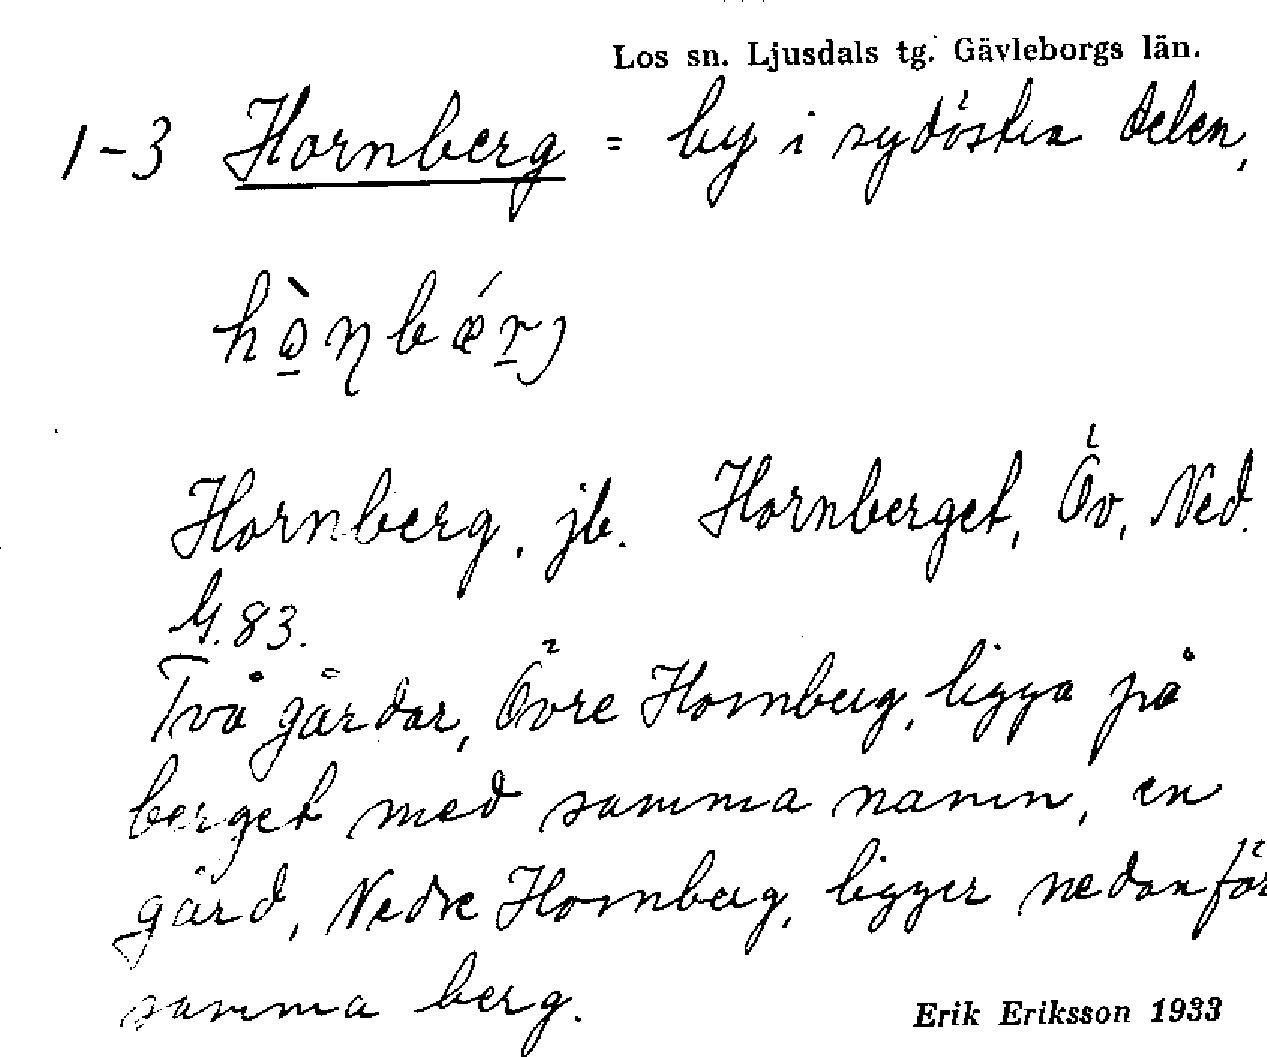 Los sn. Ljusdals tg. Gävleborgs län.
1-3 Hornberg = by i sydöstra delen,
hò̱ɳbǽṟj
Hornberg, jb. Hornberget, Öv, Ned.
G. 83.
Två gårdar, Övre Hornberg, ligga på
berget med samma namn, en
gård, Nedre Hornberg, ligger nedanför
samma berg.
Erik Eriksson 1933